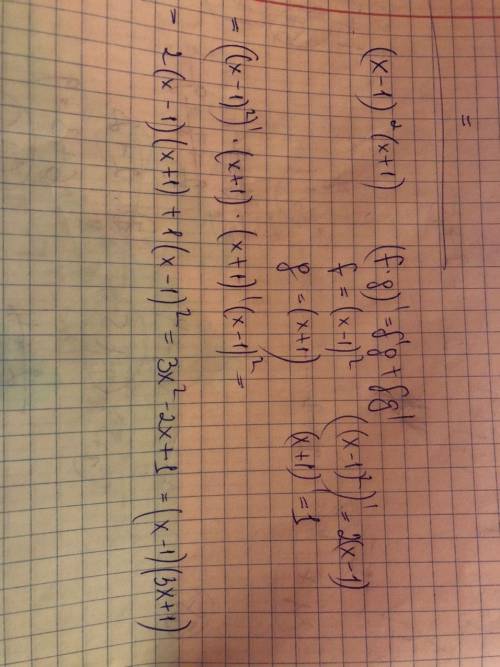 (x-1)²(x+1)
=
(f·g)' = f'g + fg'
f = (x-1)²
g = (x+1)
((x-1)²)' = 2(x-1)
(x+1)' = 1
= ((x-1)²)' · (x+1) · (x+1)'(x-1)² =
= 2(x-1)(x+1) + 1(x-1)² = 3x² - 2x + 1 = (x-1)(3x+1)